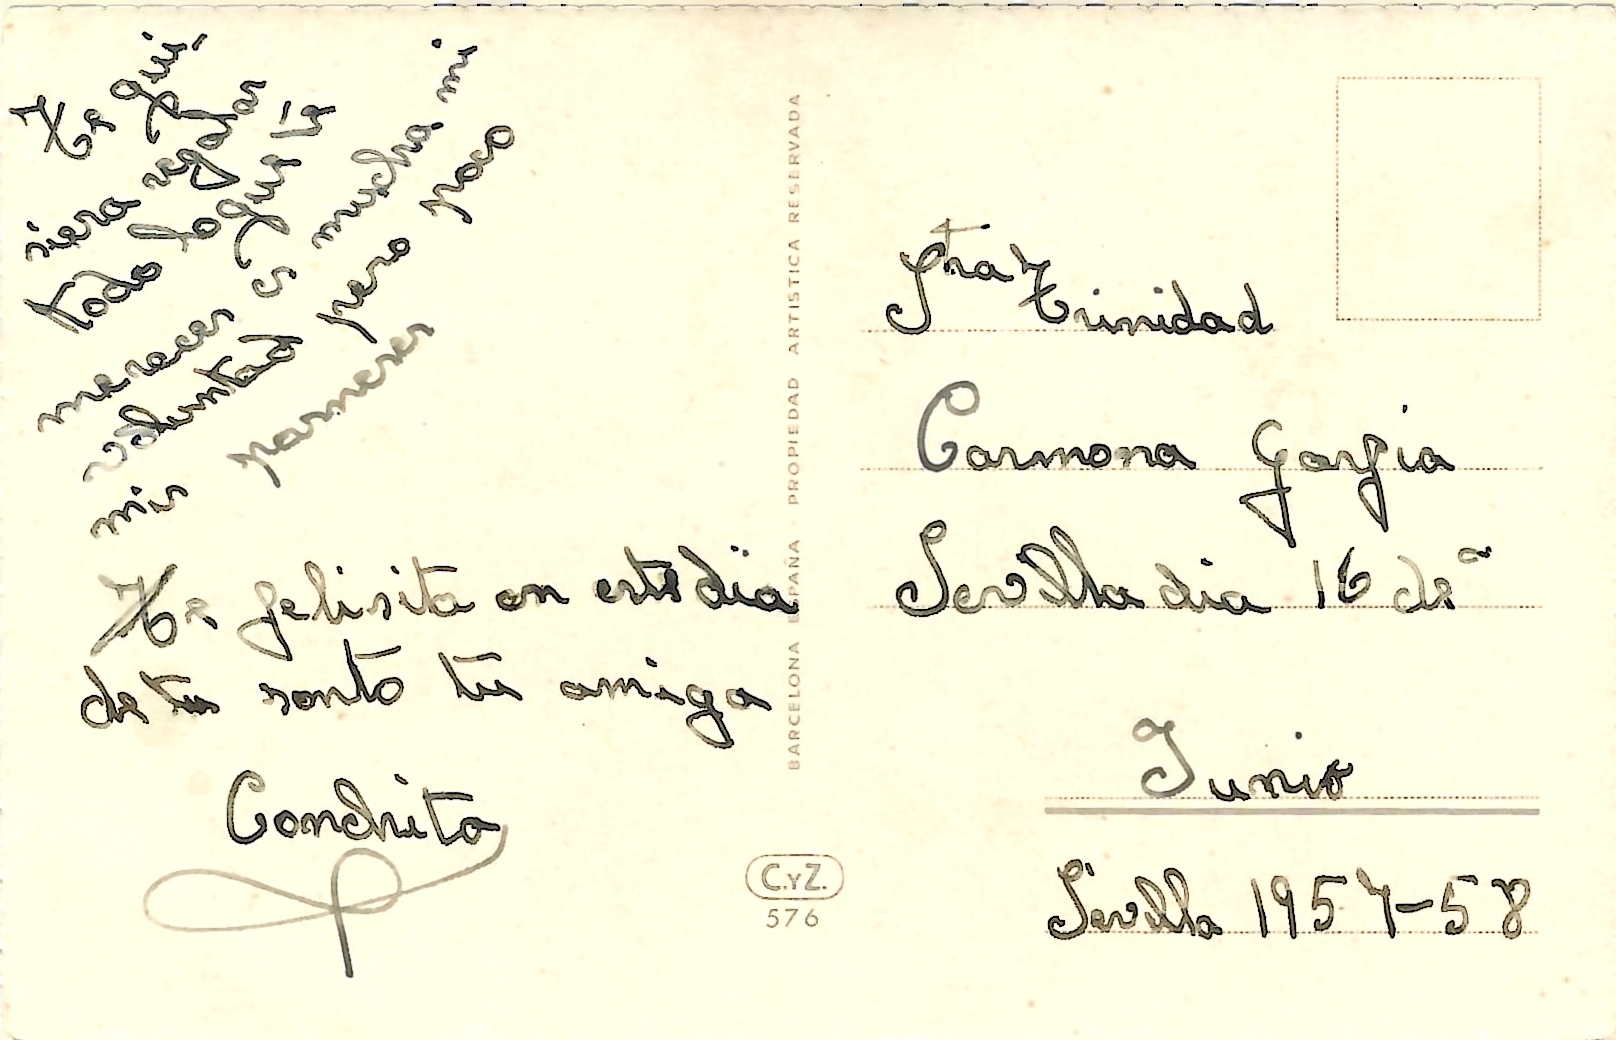 Te qui
siera regalar
todo lo que tu
mereces
es mucha mi
voluntad pero poco
mis parneses
Te felisita en este dia
de tu santo tu amiga
Conchita
BARCELONA ESPAÑA - PROPIEDAD ARTISTICA RESERVADA
C.YZ.
576
Strа Trinidad
Carmona Garsia
Sevilla dia 16 de
Junio
Sevilla 1957-58